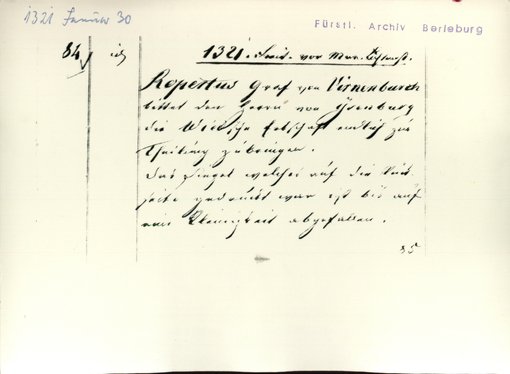 1321 Januar 30
Fürstl. Archiv Berleburg
84
1321. Freit. vor Mar. Lichtmeß.
Ropertus Graf von Virnenburch
bittet den Herrn von Isenburg
die Wiedsche Erbschaft endlich zur
Theilung zu bringen.
Das Siegel welches auf die Rück
seite gedruckt war ist bis auf
eine Kleinigkeit abgefallen.